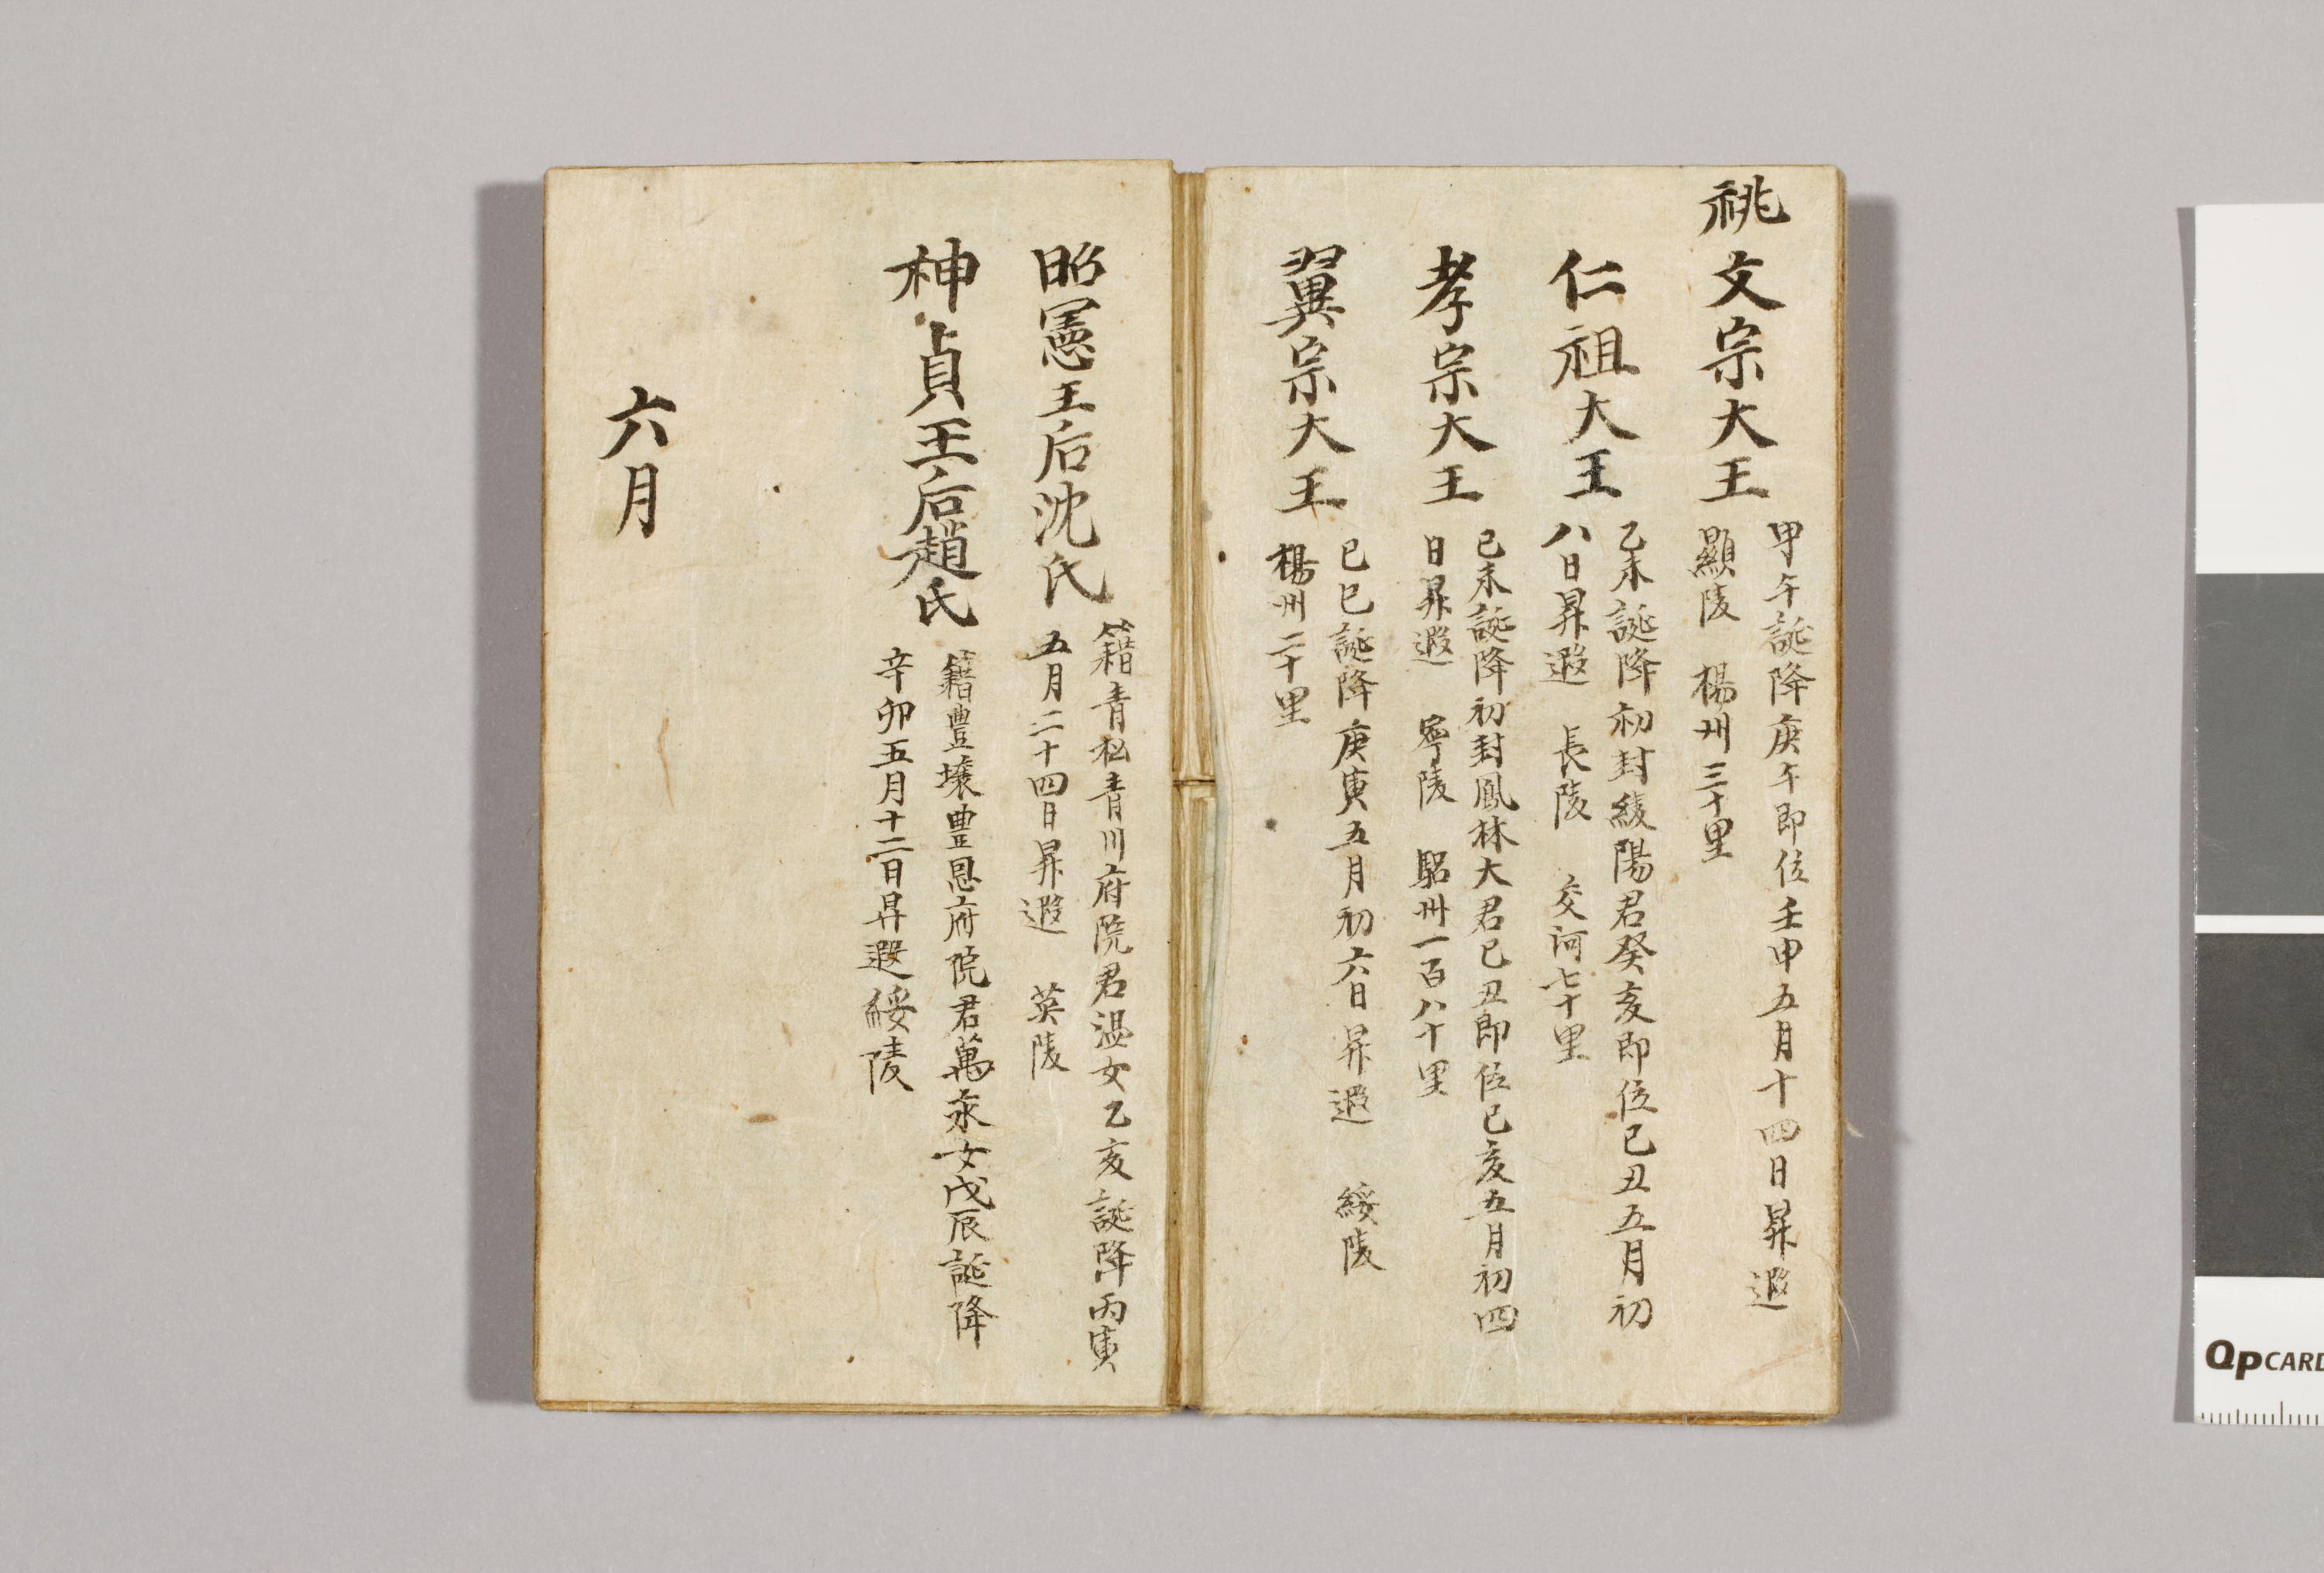 祧
文宗大王
甲午誕降庚午即位壬申五月十四日昇遐
顯陵 楊州三十里
仁祖大王
乙未誕降初封綾陽君癸亥即位己丑五月初
八日昇遐 長陵 交河七十里
孝宗大王
己未誕降初封鳳林大君己丑即位己亥五月初四
日昇遐 寧陵 驪州一百八十里
翼宗大王
己巳誕降庚寅五月初六日昇遐 綏陵
楊州二十里
昭憲王后沈氏
籍青松青川府院君温女乙亥誕降丙寅
五月二十四日昇遐 英陵
神貞王后趙氏
籍豊壤豊恩府院君萬永女戊辰誕降
辛卯五月十二日昇遐綏陵
六月
QpCARD